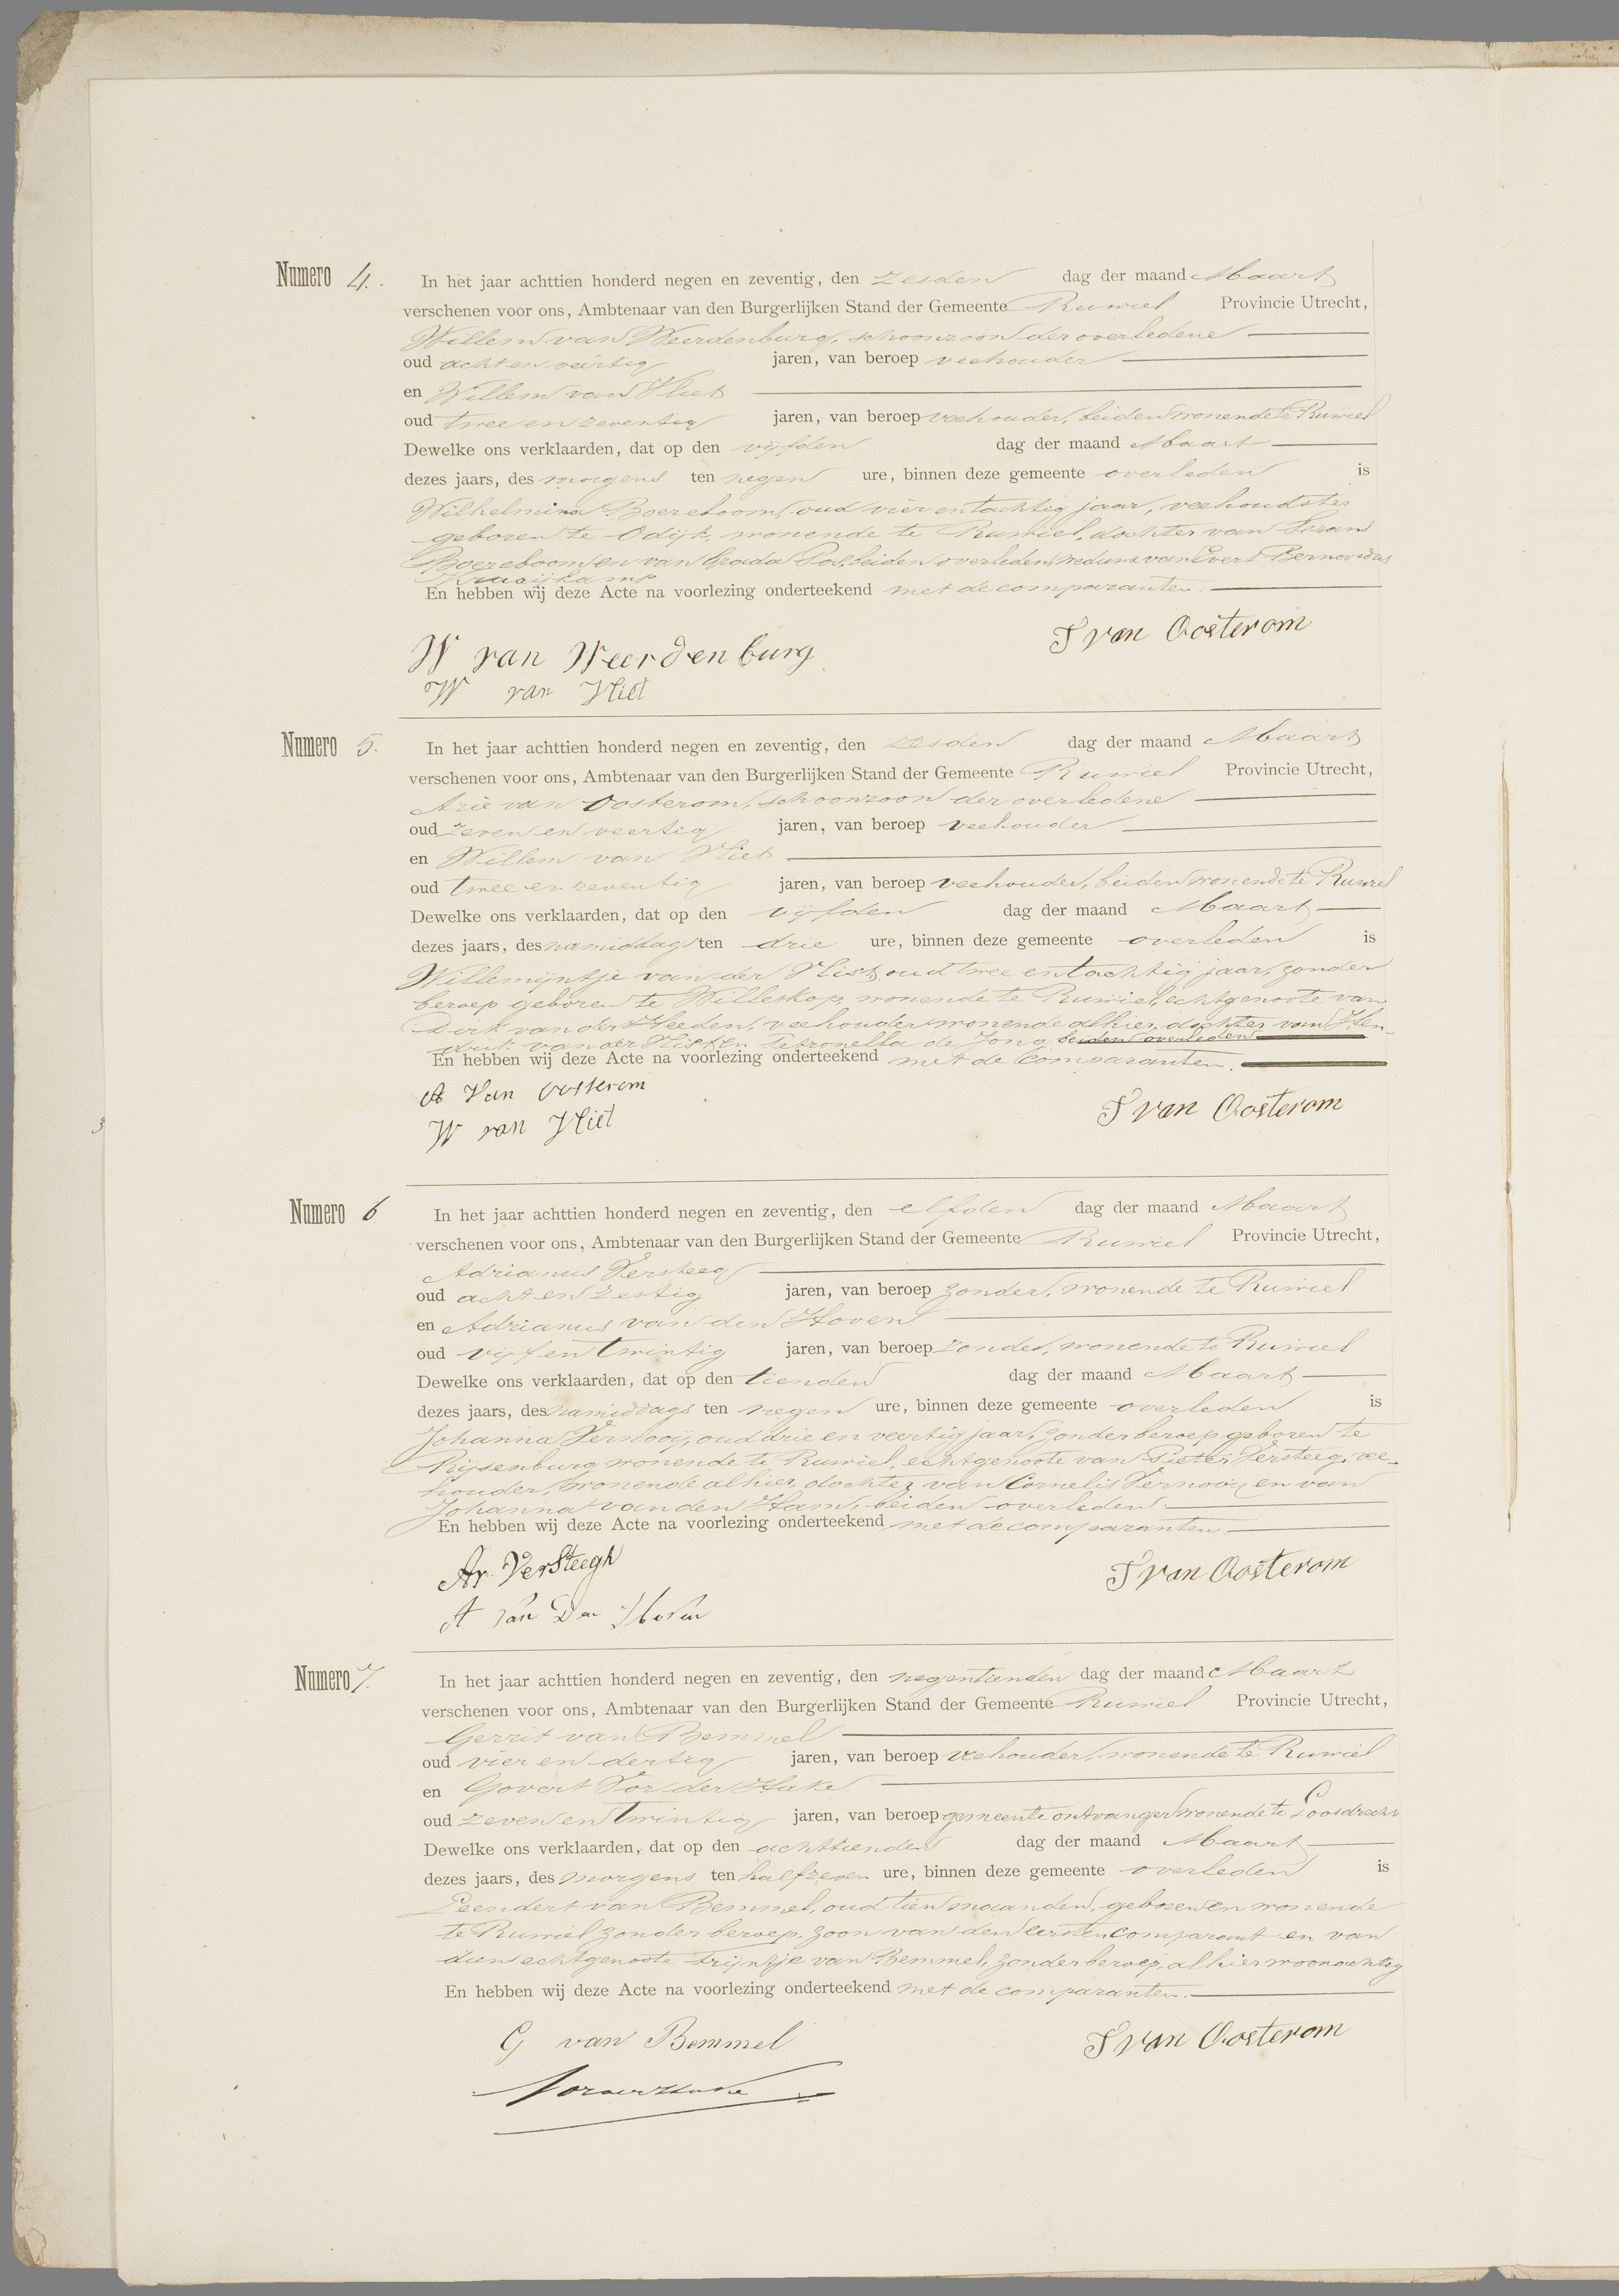 Numero 4. In het jaar achttien honderd negen en zeventig, den zesden dag der maand Maart
verschenen voor ons, Ambtenaar van den Burgerlijken Stand der Gemeente Ruwiel Provincie Utrecht,
Willem van Weerdenburg, schoonzoon der overledene
oud acht en veertig jaren, van beroep veehouder
en Willem van Vliet
oud twee en zeventig jaren, van beroep veehouder, beiden wonende te Ruwiel
Dewelke ons verklaarden, dat op den vijfden dag der maand Maart
dezes jaars, des morgens ten negen ure, binnen deze gemeente overleden is
Wilhelmina Boereboom, oud vier en tachtig jaar, veehoudster
geboren te Odijk, wonende te Ruwiel, dochter van
Boereboom en van Grada Pos, beiden overleden, weduwe van Evert Bernardus
Kraaijkamp
En hebben wij deze Acte na voorlezing onderteekend met de comparanten.
J van Oosterom
W van Weerdenburg
W van Vliet
Numero 5. In het jaar achttien honderd negen en zeventig, den zesden dag der maand Maart
verschenen voor ons, Ambtenaar van den Burgerlijken Stand der Gemeente Ruwiel Provincie Utrecht,
Arie van Oosterom, schoonzoon der overledene
oud zeven en veertig jaren, van beroep veehouder
en Willem van Vliet
oud twee en zeventig jaren, van beroep veehouder, beiden wonende te Ruwiel
Dewelke ons verklaarden, dat op den vijfden dag der maand Maart
dezes jaars, des namiddags ten drie ure, binnen deze gemeente overleden is
Willemijntje van der Vlist, oud twee en tachtig jaar, zonder
beroep geboren te Willeskop, wonende te Ruwiel, echtgenoote van
Dirk van der Heeden, veehouder wonende alhier, dochter van Hen-
drik van der Vlist en Petronella de Jong beiden overleden
En hebben wij deze Acte na voorlezing onderteekend met de comparanten.
A Van Oosterom
J van Oosterom
W van Vliet
Numero 6 In het jaar achttien honderd negen en zeventig, den elfden dag der maand Maart
verschenen voor ons, Ambtenaar van den Burgerlijken Stand der Gemeente Ruwiel Provincie Utrecht,
Adrianus Versteeg
oud acht en zestig jaren, van beroep zonder, wonende te Ruwiel
en Adrianus van den Hoven
oud vijf en twintig jaren, van beroep zonder, wonende te Ruwiel
Dewelke ons verklaarden, dat op den tienden dag der maand Maart
dezes jaars, des namiddags ten negen ure, binnen deze gemeente overleden is
Johanna Vernooij, oud drie en veertig jaar, zonder beroep geboren te
Rijsenburg wonende te Ruwiel, echtgenoote van Pieter Versteeg, vee-
houder, wonende alhier, dochter van Cornelis Vernooij en van
Johanna van den Ham, beiden overleden.
En hebben wij deze Acte na voorlezing onderteekend met de comparanten
Ar. VerSteegh
J van Oosterom
A van Den Hoven
Numero 7. In het jaar achttien honderd negen en zeventig, den negentienden dag der maand Maart
verschenen voor ons, Ambtenaar van den Burgerlijken Stand der Gemeente Ruwiel Provincie Utrecht,
Gerrit van Bemmel
oud vier en dertig jaren, van beroep veehouder, wonende te Ruwiel
en Govert Vor der Hake
oud zeven en twintig jaren, van beroep gemeente ontvanger wonende te Loosdrecht
Dewelke ons verklaarden, dat op den achttienden dag der maand Maart
dezes jaars, des morgens ten half zeven ure, binnen deze gemeente overleden is
Leendert van Bemmel, oud tien maanden, geboren en wonende
te Ruwiel zonder beroep, zoon van den eersten comparant en van
diens echtgenoote Trijntje van Bemmel, zonder beroep, alhier woonachtig
En hebben wij deze Acte na voorlezing onderteekend met de comparanten.
G van Bemmel
J van Oosterom
Vorderhake